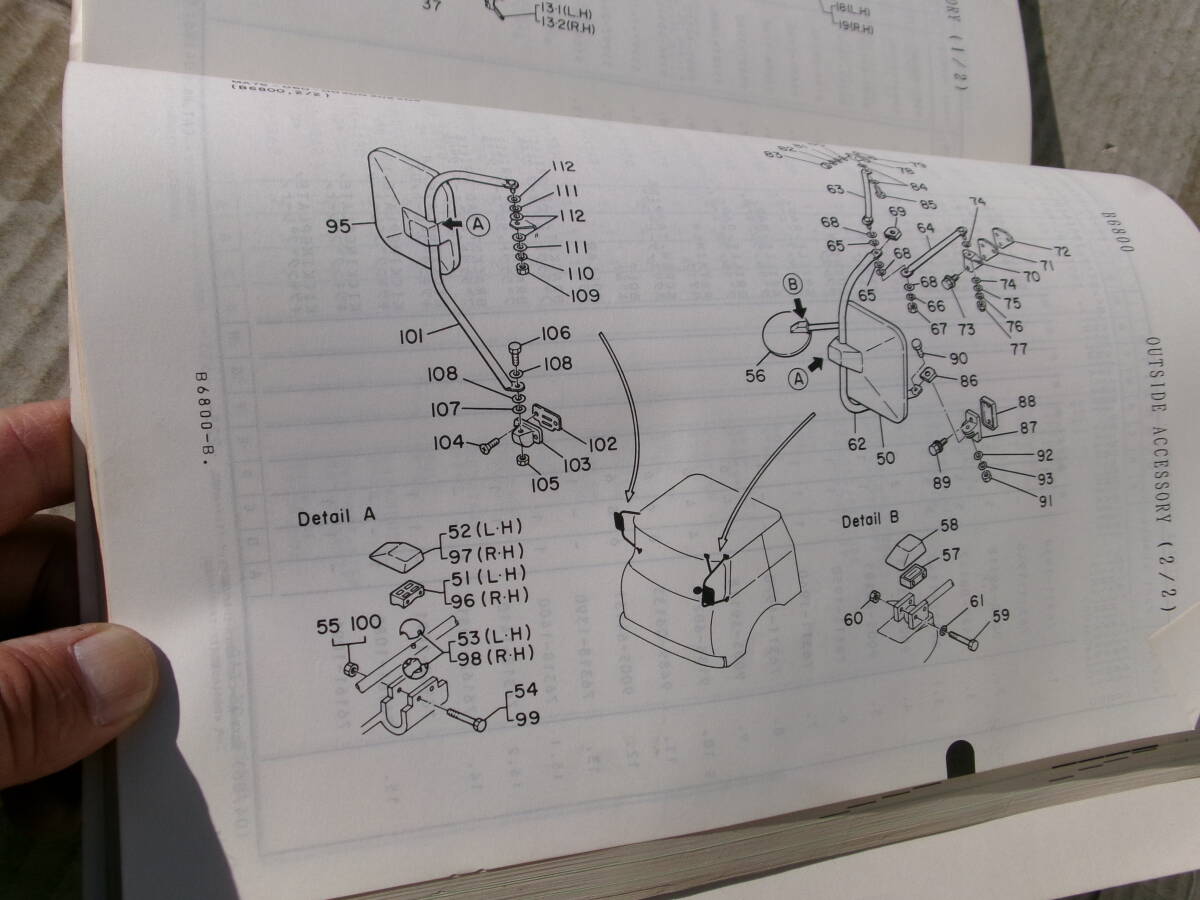 37
13·1(L.H)
13·2(R.H)
18(L.H)
19(R.H)
(1/2)
(B6800,2/2)
B6800
OUTSIDE ACCESSORY (2/2)
B6800-B.
95
A
112
111
112
111
110
109
101
106
108
108
107
104
102
103
105
83
82
63
78
84
85
69
68
65
68
65
64
74
72
71
70
74
75
76
77
73
68
66
67
B
56
A
62
50
90
86
88
87
92
93
91
89
Detail A
52(L·H)
97(R·H)
51(L·H)
96(R·H)
55 100
53(L·H)
98(R·H)
54
99
Detail B
58
57
60
61
59